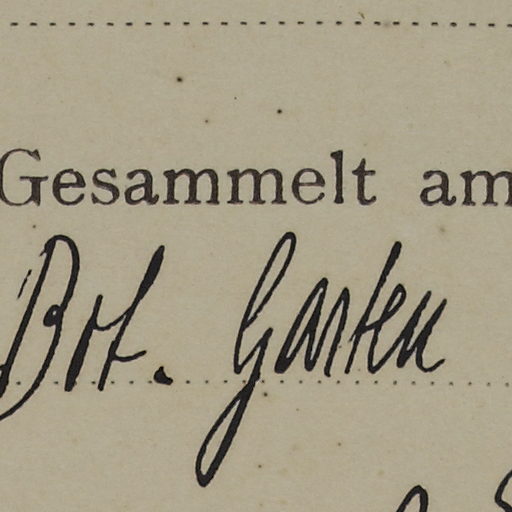 Gesammelt am
Bot. Garten